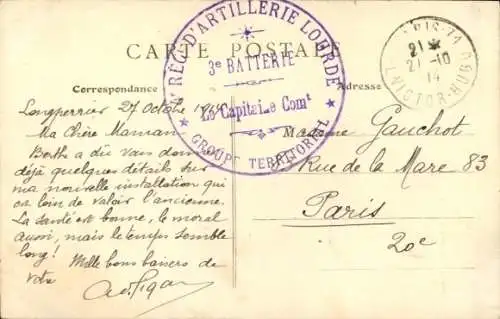 CARTE POSTALE
RÉGT D'ARTILLERIE LOURDE
3e BATTERIE
Le Capitaine Comt
GROUPE TERRITORIAL
PARIS-71
21 -10
14
VICTOR-HUGO
Correspondance
Adresse
Longperrier 27 Octobre
Ma Chère Maman
Berthe a dû vous donner
déjà quelques détails sur
ma nouvelle installation qui
est loin de valoir l'ancienne.
La santé est bonne, le moral
aussi, mais le temps semble
long!
Mille bons baisers de
votre
Madame Gauchot
Rue de la Mare 83
Paris
20e